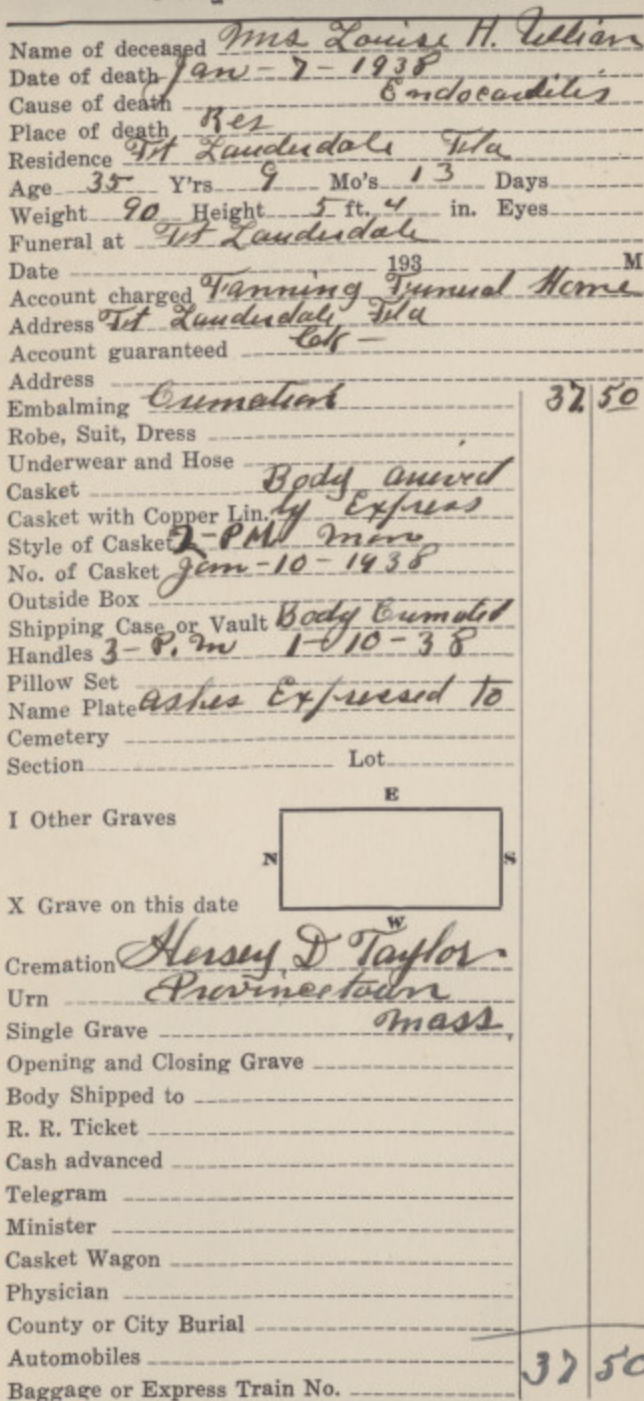 Name of deceased Mrs Louise H. Ullian
Date of death Jan - 7 - 1938
Cause of death Endocarditis
Place of death Res
Residence Ft Lauderdale Fla
Age 35 Y'rs 9 Mo's 13 Days
Weight 90 Height 5 ft. 4 in. Eyes
Funeral at Ft Lauderdale
Date 193 M
Account charged Fanning Funeral Home
Address Ft Lauderdale Fla
Account guaranteed
Address
Embalming Cremation 37 50
Robe, Suit, Dress
Underwear and Hose
Casket Body arrived
Casket with Copper Lin. by Express
Style of Casket 2-PM Mon
No. of Casket Jan-10-1938
Outside Box
Shipping Case or Vault Body Cremated
Handles 3-P.m 1-10-38
Pillow Set
Name Plate ashes Expressed to
Cemetery
Section Lot
E
I Other Graves
N S
X Grave on this date
W
Cremation Hersey D Taylor
Urn Provincetown
Single Grave Mass,
Opening and Closing Grave
Body Shipped to
R. R. Ticket
Cash advanced
Telegram
Minister
Casket Wagon
Physician
County or City Burial
Automobiles 37 50
Baggage or Express Train No.